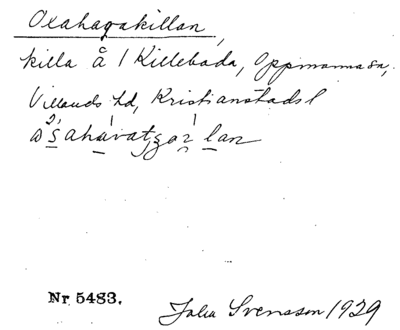 Oxahagakillan,
killa å 1 Killeboda, Oppmanna sn,
Villands hd, Kristianstads l
Nr 5483.
Julia Svensson 1929